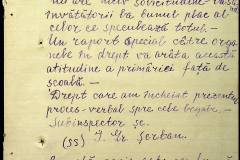 nu are nici solicitudine
Învățătorii la bunul plac al
celor ce speculează totul. -
- Un raport special către orga
nele în drept va arăta această
atitudine a primăriei față de
școală. -
- Drept care am încheiat prezentul
proces-verbal spre cele legale. -
- Subinspector șc.
(ss) I. Gr. Șerban.